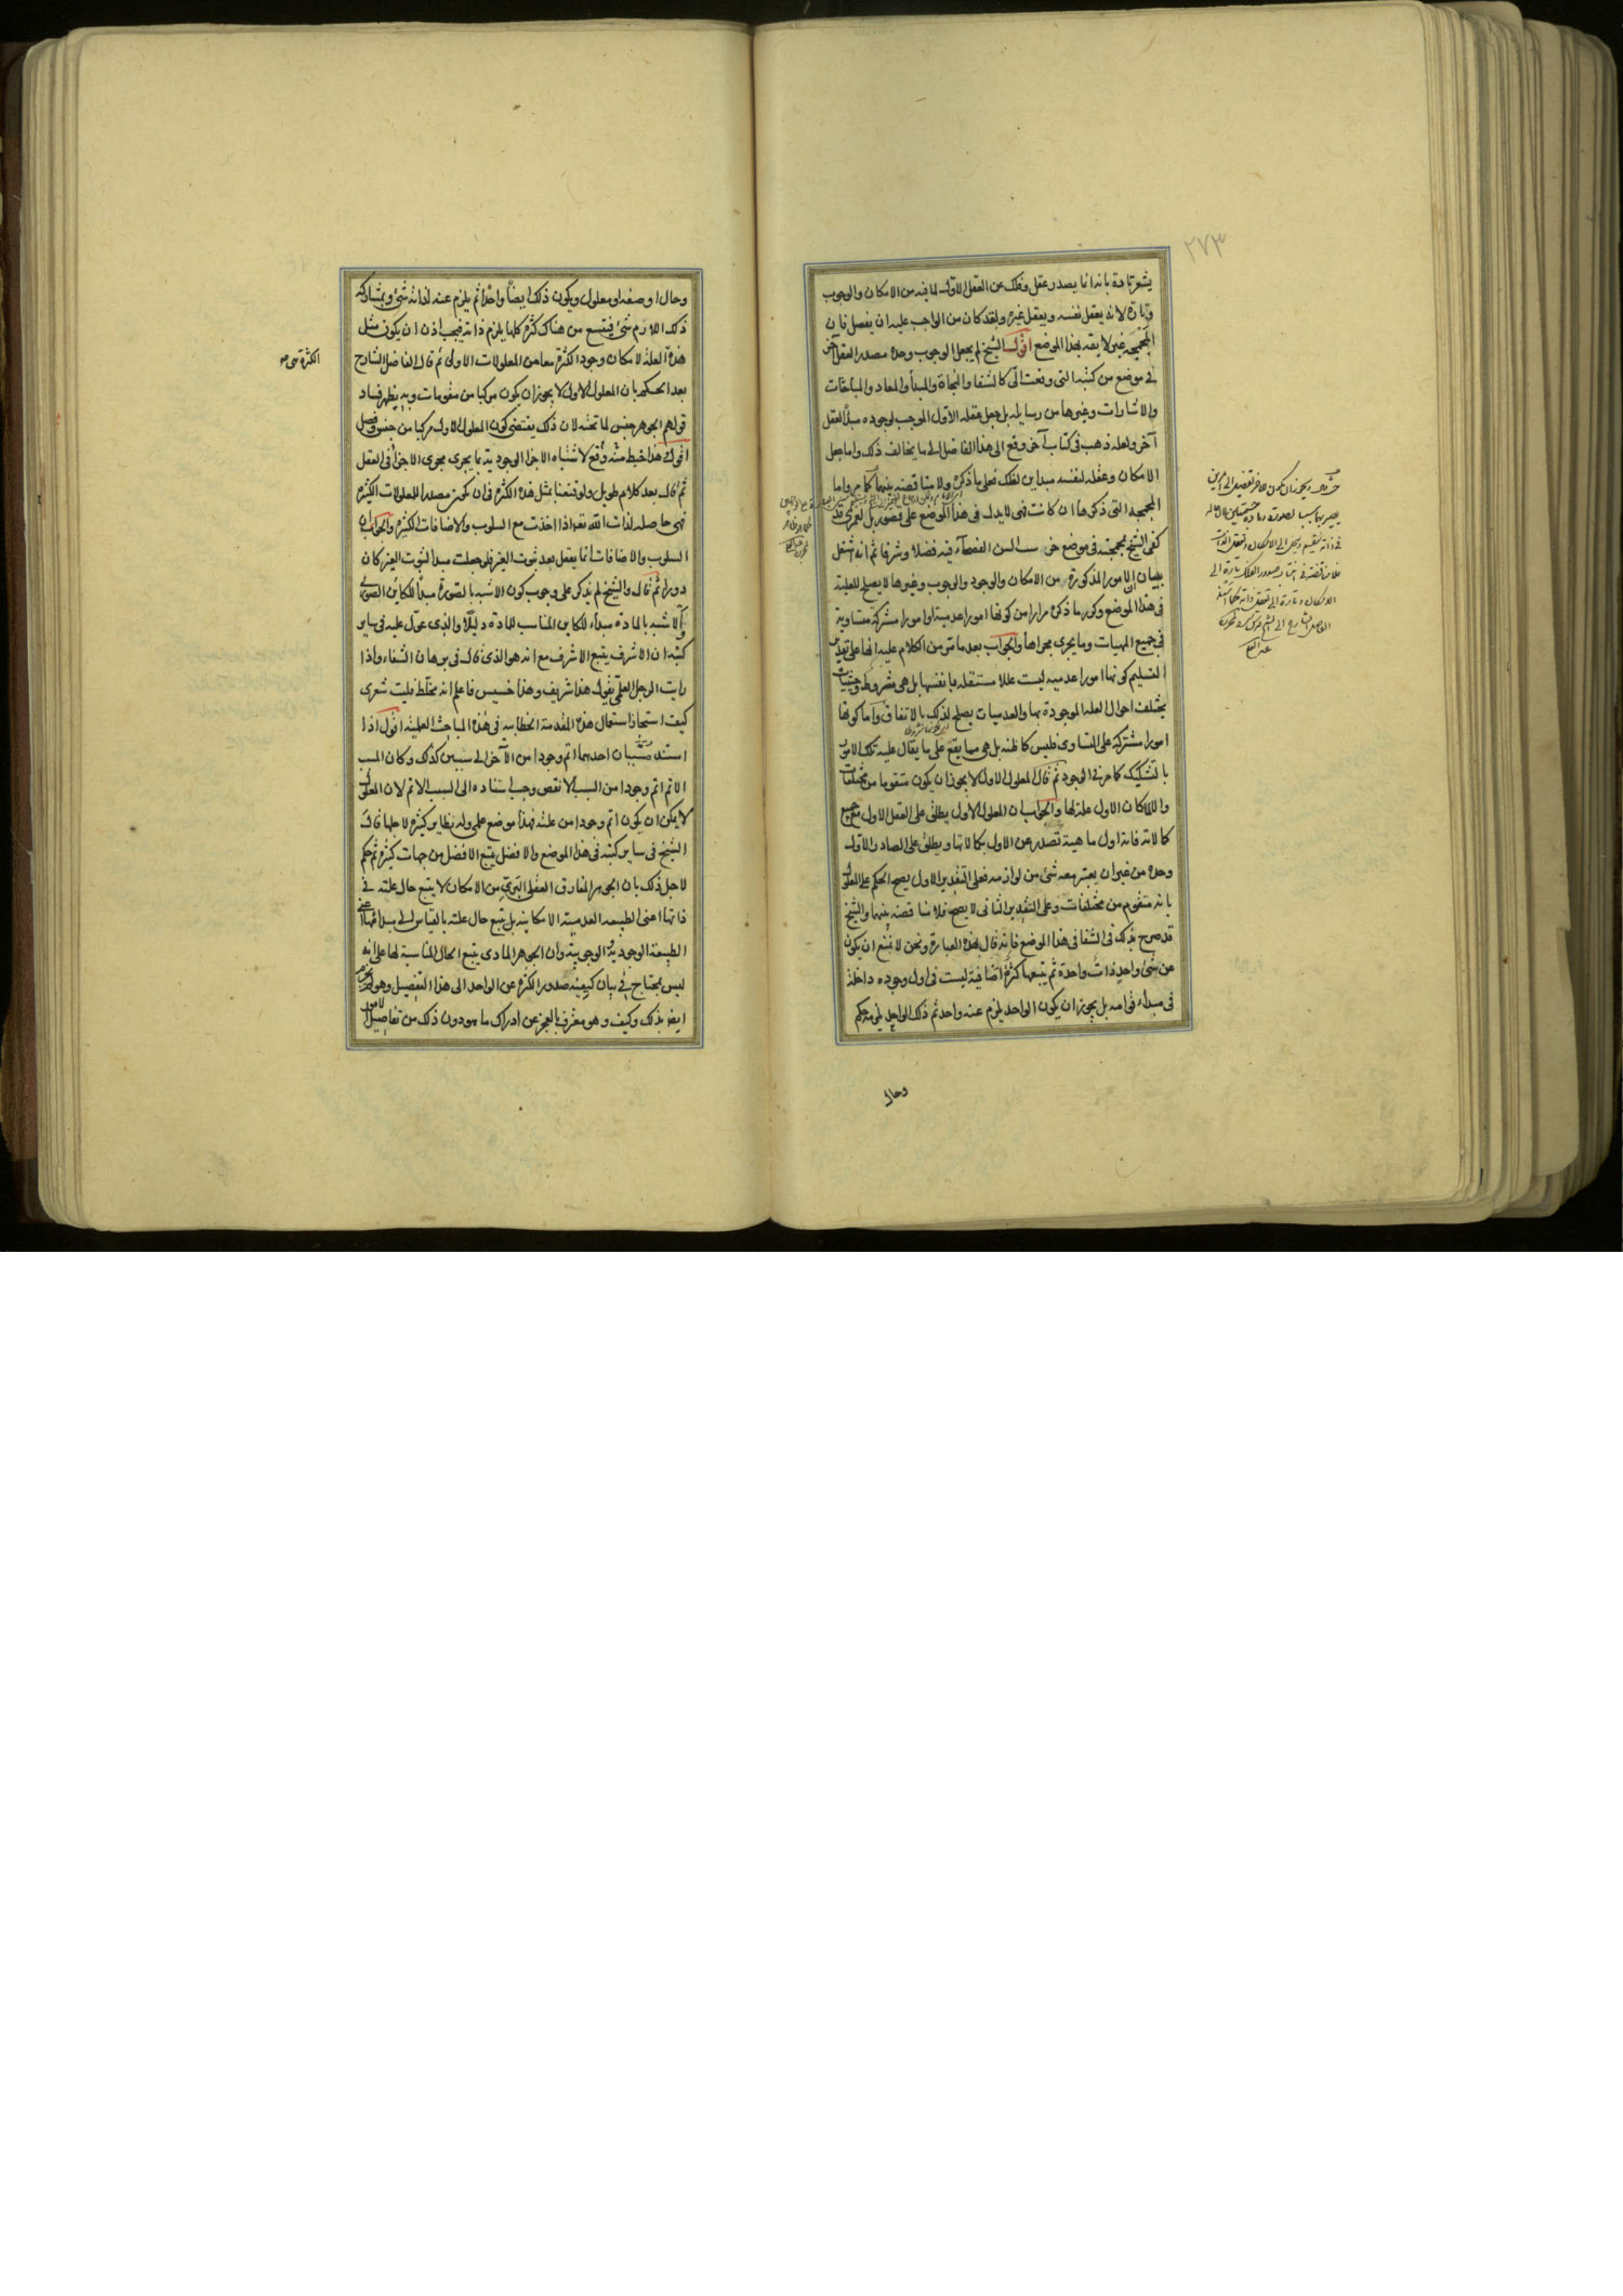 ٢٧٣
يشعر تارة بانه انما يصدر عقل وفلك عن العقل الاول لما فيه من الامكان والوجوب
وتارة لانه يعقل نفسه ويعقل غيره ولقد كان من الواجب عليه ان يفصل فان
المجمجة غير لايقة بهذا الموضع اقول الشيخ لم يجعل الوجوب وحده مصدر العقل آخر
في موضع من كتبه التي وقعت الّى كالشفا والنجاة والمبدأ والمعاد والمباحثات
والاشارات وغيرها من رسايله بل جعل عقله الاول الموجب لوجوده مبدأ لعقل
آخر ولعله ذهب في كتاب آخر وقع الى هذا الفاضل الى ما يخالف ذلك واما جعل
الامكان وعقله لنفسه مبداين لفلك فعلى ما ذكره ولا مناقضة بينهما كما مر واما
المجمجة التي ذكرها ان كانت فهي لا يدل في هذا الموضع على قصور بل لعمرى قد
كفى الشيخ بمجمجته في موضع خرست السن الفصحآء فيه فضلا وشرفا ثم انه اشتغل
ببيان ان الامور المذكورة من الامكان والوجود والوجوب وغيرها لا يصلح للعلية
في هذا الموضع وكرر ما ذكره مرارا من كونها امورا عدمية او امورا مشتركة متساوية
في جميع المهيات وما يجرى مجراها والجواب بعد ما مر من الكلام عليه انها على تقدير
التسليم كونها امورا عدمية ليست عللا مستقلة بانفسها بل هي شروط وحيثيات
يختلف احوال العلة الموجودة بها والعدميات يصلح لذلك بالاتفاق واما كونها
امورا مشتركة على التساوى فليس كما ظنه بل هي مما يقع على ما يقال عليه تلك الامور
بالتشكيك كما مر في الوجود ثم قال المعلول الاول لا يجوز ان يكون متقوما من مختلفات
والا لكان الاول علة لها والجواب ان المعلول الاول يطلق على العقل الاول مع جميع
كمالاته فانه اول ماهية تصدر عن الاول بكمالاتها ويطلق على الصادر الاول
وحده من غير ان يعتبر معه شئ من لوازمه فعلى التقدير الاول يصح الحكم على المعلول
بانه متقوم من مختلفات وعلى التقدير الثانى لا يصح فلا مناقضة بينهما والشيخ
قد صرح بذلك في الشفا في هذا الموضع فانه قال بهذه العبارة ونحن لا نمنع ان يكون
عن شئ واحد ذات واحدة ثم يتبعها كثرة اضافية ليست في اول وجوده داخلة
في مبداء قوامه بل يجوز ان يكون الواحد يلزم عنه واحد ثم ذلك الواحد يلزمه حكم
وحال
وحال او صفة او معلول ويكون ذلك ايضا واحدا ثم يلزم عنه لذاته شئ وبمشاركة
ذلك اللازم شئ فيتبع من هناك كثرة كلها يلزم ذاته فيجب اذن ان يكون مثل
هذه العلة لامكان وجود الكثرة معا من المعلولات الاولى ثم قال الفاضل الشارح
بعد الحكم بان المعلول الاول لا يجوز ان يكون مركبا من مقومات وبه يظهر فساد
قولهم الجوهر جنس لما تحته لان ذلك يقتضى كون المعلول الاول مركبا من جنس وفصل
اقول هذا خبط منه وقع لاشتباه الاجزا الوجودية بما يجرى مجرى الاجزا في العقل
ثم قال بعد كلام طويل ولو قنعنا بمثل هذه الكثرة في ان يكون مصدرا للمعلولات الكثيرة
فهي حاصلة لذات الله تع اذا اخذت مع السلوب والاضافات الكثيرة والجواب ان
السلوب والاضافات انما يعقل بعد ثبوت الغير فلو جعلت مبدأ لثبوت الغير كان
دورا ثم قال والشيخ لم يذكر على وجوب كون الاشبه بالصورة مبدأ للكاين الصورى
والاشبه بالمادة مبداء للكاين المناسب للمادة دليلا والذى عول عليه في ساير
كتبه ان الاشرف يتبع الاشرف مع انه هو الذى قال في برهان الشفاء واذا
رايت الرجل العلمى يقول هذا شريف وهذا خسيس فاعلم انه مخلط فليت شعرى
كيف استجاز استعمال هذه المقدمة الخطابية في هذه المباحث العلمية اقول اذا
استند مسببان احدهما اتم وجودا من الآخر الى سببين كذلك وكان المسبب
الاتم اتم وجودا من السبب الانقص وجب استناده الى السبب الاتم لان المعلول
لا يمكن ان يكون اتم وجودا من علته فهذا موضع علمى وله نظاير كثيرة لاجلها قال
الشيخ في ساير كتبه في هذا الموضع والافضل يتبع الافضل من جهات كثيرة ثم حكم
لاجل ذلك بان الجوهر المفارق العقلى البرى من الامكان لا يتبع حال علته في
ذاتها اعنى الطبيعة العدمية الامكانية بل يتبع حال علته بالقياس الى مبداها اعنى
الطبيعة الوجودية الوجوبية وان الجوهر المادى يتبع الحال المناسبة لها على انه
ليس يحتاج في بيان كيفية صدور الكثرة عن الواحد الى هذا التفصيل وهو معترف
ايضا بذلك وكيف وهو معترف بالعجز عن ادراك ما هو دون ذلك من تفاصيل الامور